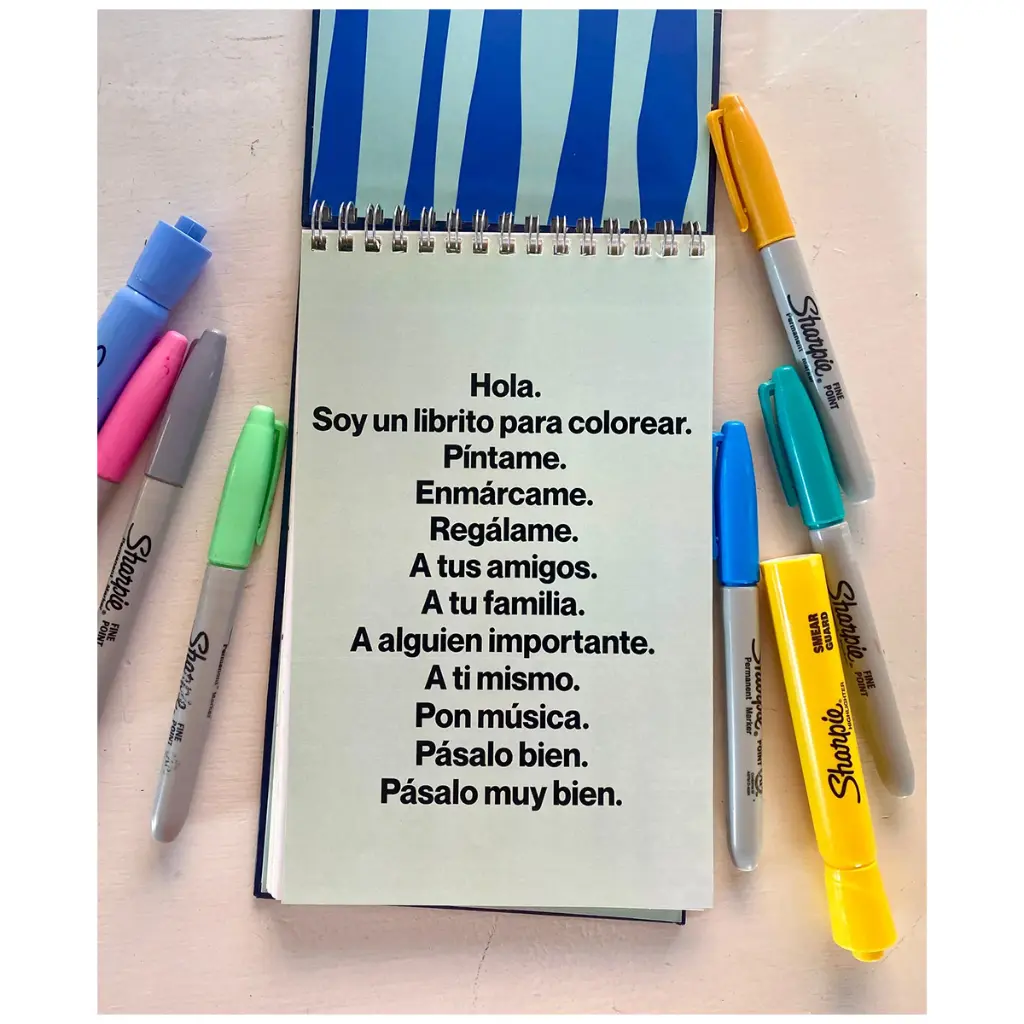 Hola.
Soy un librito para colorear.
Píntame.
Enmárcame.
Regálame.
A tus amigos.
A tu familia.
A alguien importante.
A ti mismo.
Pon música.
Pásalo bien.
Pásalo muy bien.
Sharpie
FINE POINT
Sharpie
Permanent Marker
FINE POINT
Sharpie
Permanent Marker
FINE POINT
Sharpie
FINE POINT
Sharpie
Permanent Marker
POINT
SMEAR GUARD
Sharpie
HIGHLIGHTER